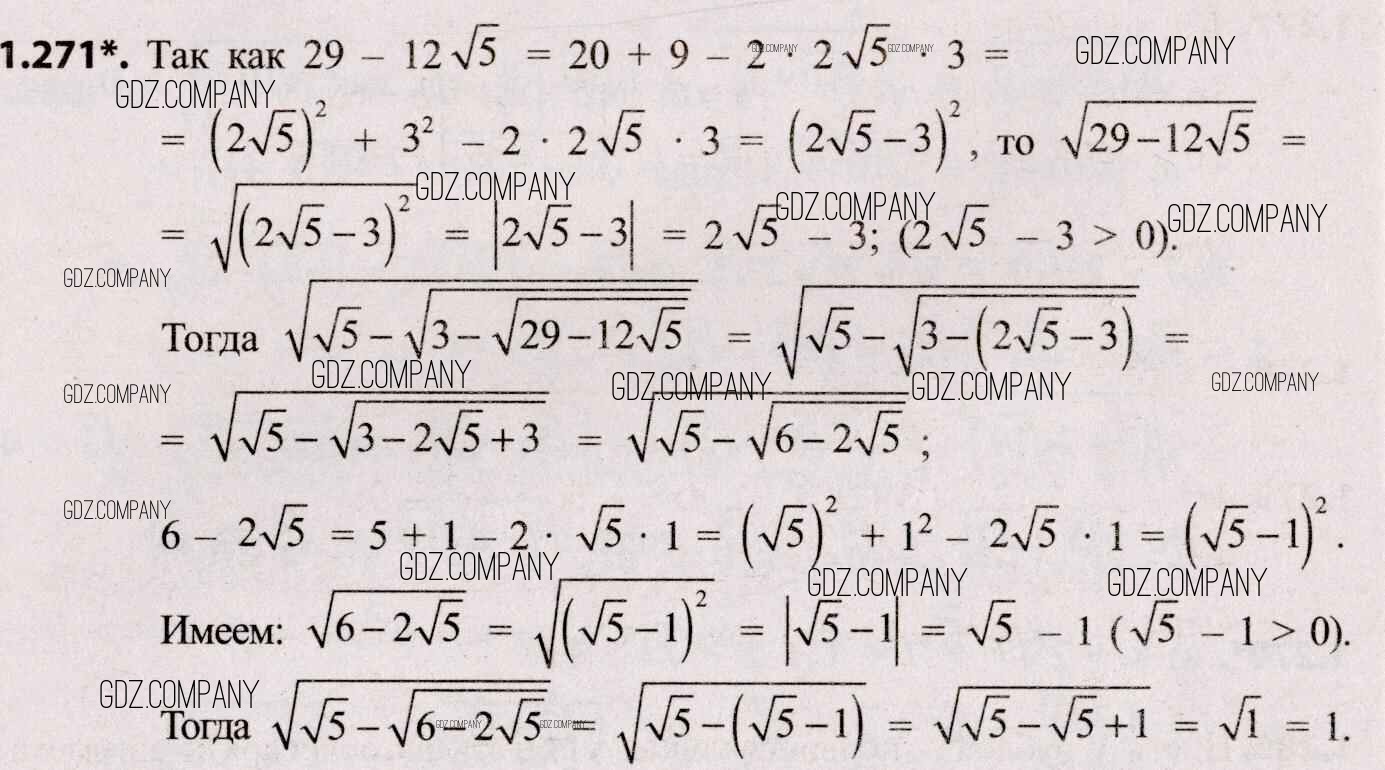 1.271*. Так как 29 – 12√5 = 20 + 9 – 2 · 2√5 · 3 = GDZ.COMPANY
GDZ.COMPANY
= (2√5)² + 3² – 2 · 2√5 · 3 = (2√5 – 3)², то √(29 – 12√5) =
GDZ.COMPANY GDZ.COMPANY GDZ.COMPANY
= √((2√5 – 3)²) = |2√5 – 3| = 2√5 – 3; (2√5 – 3 > 0).
GDZ.COMPANY
Тогда √(√5 – √(3 – √(29 – 12√5))) = √(√5 – √(3 – (2√5 – 3))) =
GDZ.COMPANY GDZ.COMPANY GDZ.COMPANY GDZ.COMPANY GDZ.COMPANY
= √(√5 – √(3 – 2√5 + 3)) = √(√5 – √(6 – 2√5)) ;
GDZ.COMPANY
6 – 2√5 = 5 + 1 – 2 · √5 · 1 = (√5)² + 1² – 2√5 · 1 = (√5 – 1)².
GDZ.COMPANY GDZ.COMPANY GDZ.COMPANY
Имеем: √(6 – 2√5) = √((√5 – 1)²) = |√5 – 1| = √5 – 1 (√5 – 1 > 0).
GDZ.COMPANY
Тогда √(√5 – √(6 – 2√5)) = √(√5 – (√5 – 1)) = √(√5 – √5 + 1) = √1 = 1.